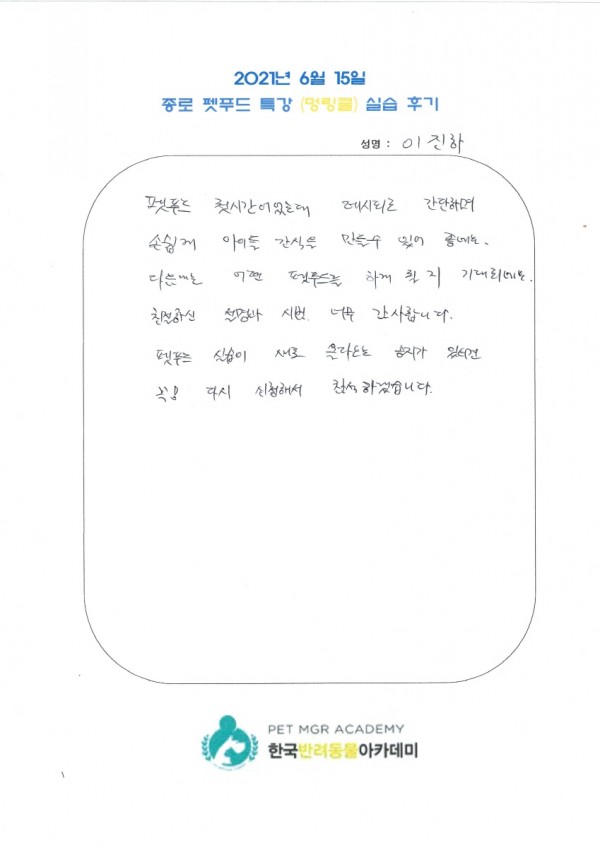 2021년 6월 15일
종로 펫푸드 특강 (멍링클) 실습 후기
성명 : 이진하
펫푸드 첫시간이었는데 레시피로 간단하며
손쉽게 아이들 간식을 만들수 있어 좋네요.
다음에는 어떤 펫푸드를 하게 될지 기대되네요.
친절하신 설명과 시범. 너무 감사합니다.
펫푸드 실습이 새로 올라오는 공지가 있으면
꼭 다시 신청해서 참석하겠습니다.
PET MGR ACADEMY
한국반려동물아카데미